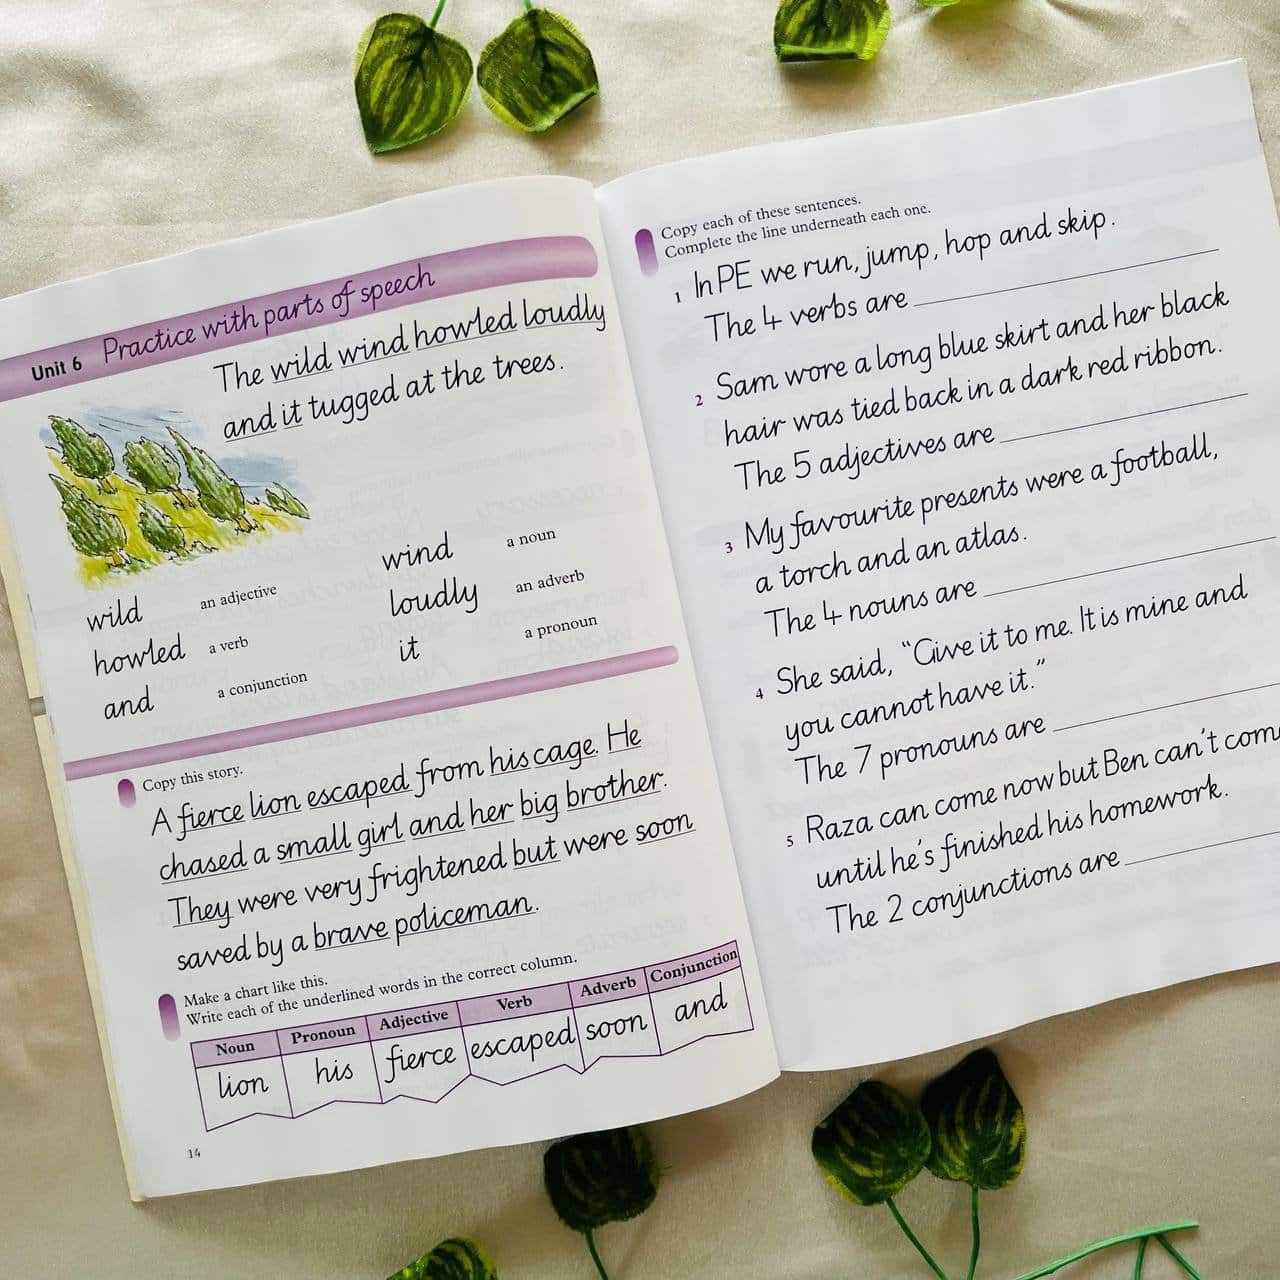 Unit 6 Practice with parts of speech
The wild wind howled loudly
and it tugged at the trees.
wild an adjective
howled a verb
and a conjunction
wind a noun
loudly an adverb
it a pronoun
Copy this story.
A fierce lion escaped from his cage. He
chased a small girl and her big brother.
They were very frightened but were soon
saved by a brave policeman.
Make a chart like this.
Write each of the underlined words in the correct column.
Noun Pronoun Adjective Verb Adverb Conjunction
lion his fierce escaped soon and
14
Copy each of these sentences.
Complete the line underneath each one.
1 In PE we run, jump, hop and skip.
The 4 verbs are
2 Sam wore a long blue skirt and her black
hair was tied back in a dark red ribbon.
The 5 adjectives are
3 My favourite presents were a football,
a torch and an atlas.
The 4 nouns are
4 She said, "Give it to me. It is mine and
you cannot have it."
The 7 pronouns are
5 Raza can come now but Ben can't com
until he's finished his homework.
The 2 conjunctions are